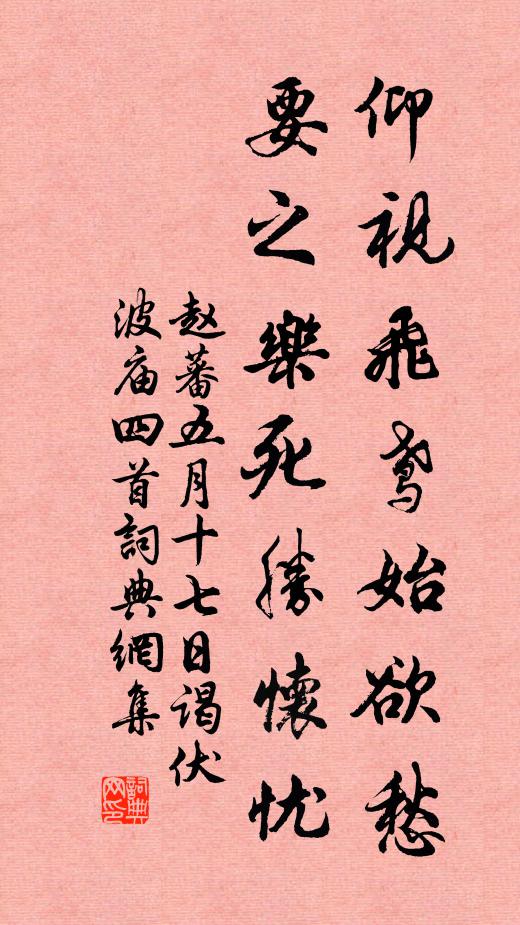 仰视飛鸢始欲愁
要之樂死勝懷忧
赵蕃五月十七日谒伏
波庙四首詞典網集
詞典
网印